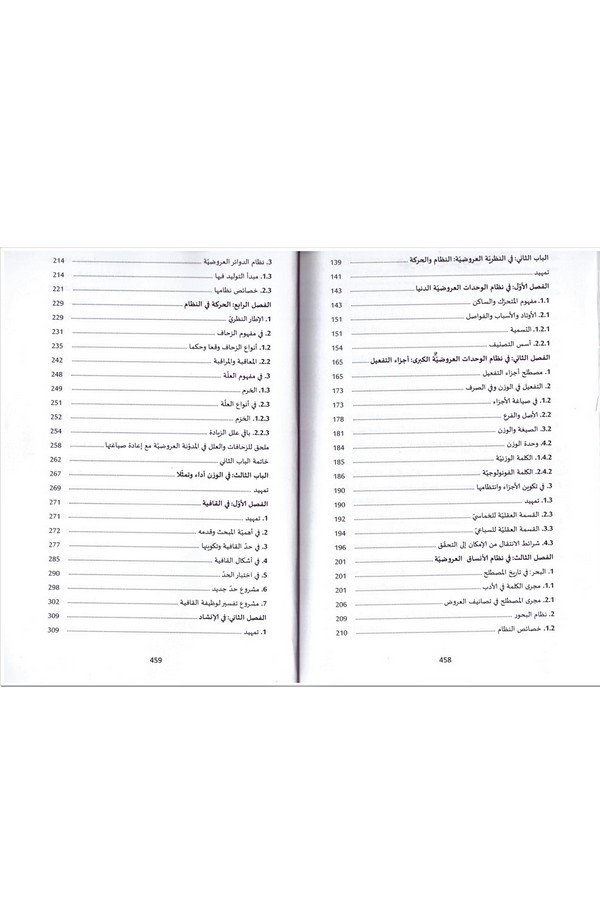 الباب الثاني: في النظريّة العروضيّة: النظام والحركة 139
تمهيد 141
الفصل الأوّل: في نظام الوحدات العروضيّة الدنيا 143
1.1. مفهوم المتحرّك والساكن 143
2.1. الأوتاد والأسباب والفواصل 151
1.2.1. التسمية 151
2.2.1. أسس التصنيف 154
الفصل الثاني: في نظام الوحدات العروضيّة الكبرى: أجزاء التفعيل 165
1. مصطلح أجزاء التفعيل 165
2. التفعيل في الوزن وفي الصرف 173
1.2. في صياغة الأجزاء 173
2.2. الأصل والفرع 178
3.2. الصيغة والوزن 181
4.2. وحدة الوزن 184
1.4.2. الكلمة الوزنيّة 185
2.4.2. الكلمة الفونولوجيّة 186
3. في تكوين الأجزاء وانتظامها 190
1.3. تمهيد 190
2.3. القسمة العقليّة للخماسيّ 192
3.3. القسمة العقليّة للسباعيّ 194
4.3. شرائط الانتقال من الإمكان إلى التحقّق 196
الفصل الثالث: في نظام الأنساق العروضيّة 201
1. البحر: في تاريخ المصطلح 201
1.1. مجرى الكلمة في الأدب 201
2.1. مجرى المصطلح في تصانيف العروض 206
2. نظام البحور 209
1.2. خصائص النظام 210
458
3. نظام الدوائر العروضيّة 214
1.3. مبدأ التوليد فيها 214
2.3. خصائص نظامها 221
الفصل الرابع: الحركة في النظام 229
1. الإطار النظريّ 229
2. في مفهوم الزحاف 231
1.2. أنواع الزحاف وقعا وحكما 235
2.2. المعاقبة والمراقبة 242
3. في مفهوم العلّة 248
1.3. الخرم 249
2.3. في أنواع العلّة 251
1.2.3. الخزم 252
2.2.3. باقي علل الزيادة 254
ملحق للزحافات والعلل في المدوّنة العروضيّة مع إعادة صياغتها 258
خاتمة الباب الثاني 262
الباب الثالث: في الوزن أداء وتمثّلا 267
تمهيد 269
الفصل الأوّل: في القافية 271
1. تمهيد 271
2. في أهميّة المبحث وقدمه 272
3. في حدّ القافية وتكوينها 277
4. في أشكال القافية 285
5. في اختبار الحدّ 290
6. مشروع حدّ جديد 298
7. مشروع تفسير لوظيفة القافية 302
الفصل الثاني: في الإنشاد 309
1. تمهيد 309
459